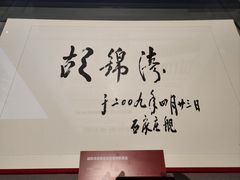 胡錦濤
于二〇〇九年四月廿三日
石家庄舰